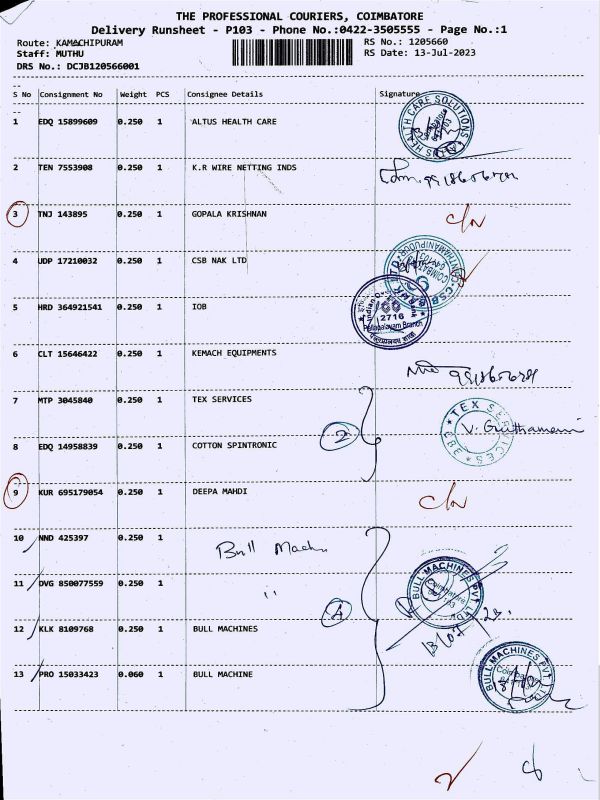 THE PROFESSIONAL COURIERS, COIMBATORE
Delivery Runsheet - P103 - Phone No.:0422-3505555 - Page No.:1
Route: KAMACHIPURAM RS No.: 1205660
Staff: MUTHU RS Date: 13-Jul-2023
DRS No.: DCJB120566001
S No Consignment No Weight PCS Consignee Details Signature
1 EDQ 15899609 0.250 1 ALTUS HEALTH CARE
HEALTH CARE SOLUTIONS
2 TEN 7553908 0.250 1 K.R WIRE NETTING INDS
3 TNJ 143895 0.250 1 GOPALA KRISHNAN
4 UDP 17210032 0.250 1 CSB NAK LTD
CSB BANK LTD
COIMBATORE
5 HRD 364921541 0.250 1 IOB
2716
Branch
6 CLT 15646422 0.250 1 KEMACH EQUIPMENTS
7 MTP 3045840 0.250 1 TEX SERVICES
2
TEX SERVICES
CBE
8 EDQ 14958839 0.250 1 COTTON SPINTRONIC
9 KUR 695179054 0.250 1 DEEPA MAHDI
10 NND 425397 0.250 1 Bull
11 DVG 850077559 0.250 1 "
4
BULL MACHINES PVT LTD
Coimbatore
12 KLK 8109768 0.250 1 BULL MACHINES
13 PRO 15033423 0.060 1 BULL MACHINE
BULL MACHINES PVT LTD